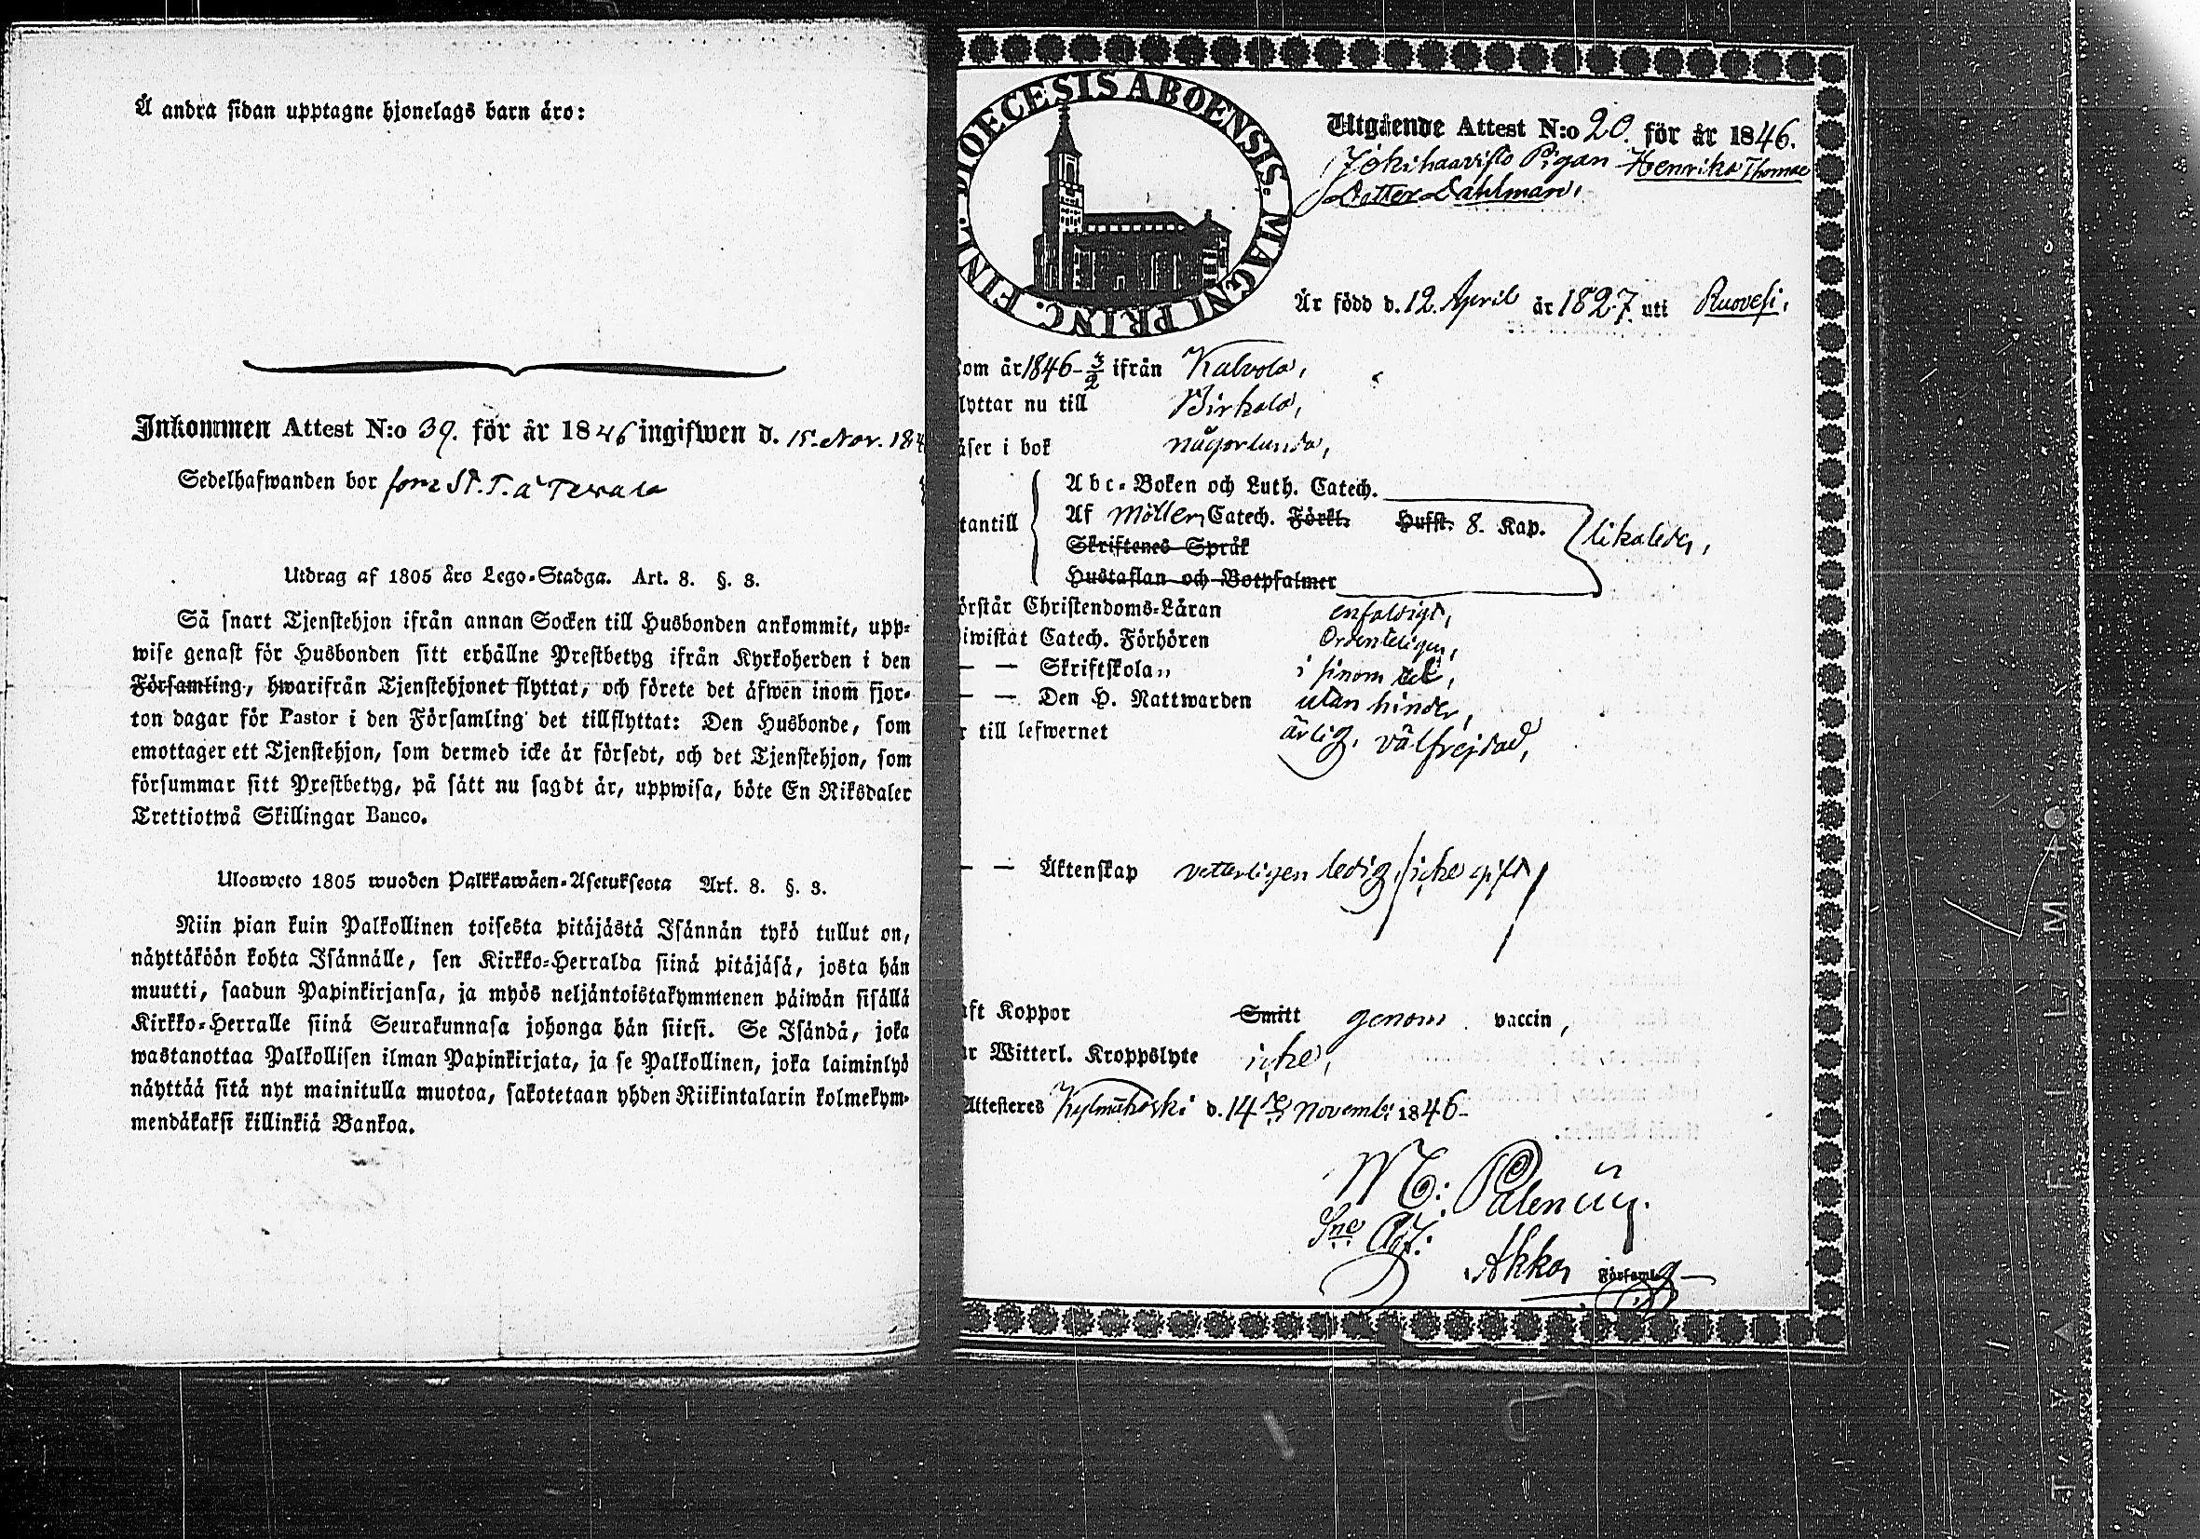 Å andra sidan upptagne hjonelags barn äro:
Inkommen Attest N:o 39. för år 1846 ingifwen d. 15. Nov. 184
Sedelhafwanden bor
Utdrag af 1805 års Lego-Stadga. Art. 8. §. 3.
Så snart Tjenstehjon ifrån annan Socken till Husbonden ankommit, upp-
wise genast för Husbonden sitt erhållne Prestbetyg ifrån Kyrkoherden i den
Församling, hwarifrån Tjenstehjonet flyttat, och förete det äfwen inom fjor-
ton dagar för Pastor i den Församling det tillflyttat: Den Husbonde, som
emottager ett Tjenstehjon, som dermed icke är försedt, och det Tjenstehjon, som
försummar sitt Prestbetyg, på sätt nu sagdt är, uppwisa, böte En Riksdaler
Trettiotwå Skillingar Banco.
Ulosweto 1805 wuoden Palkkawäen-Asetuksesta Art. 8. §. 3.
Niin pian kuin Palkollinen toisesta pitäjästä Isännän tykö tullut on,
näyttäköön kohta Isännälle, sen Kirkko-Herralda siinä pitäjäsä, josta hän
muutti, saadun Papinkirjansa, ja myös neljäntoistakymmenen päiwän sisällä
Kirkko-Herralle siinä Seurakunnasa johonga hän siirsi. Se Isändä, joka
wastanottaa Palkollisen ilman Papinkirjata, ja se Palkollinen, joka laiminlyö
näyttää sitä nyt mainitulla muotoa, sakotetaan yhden Riikintalarin kolmekym-
mendäkaksi killinkiä Bankoa.
DIOECESIS ABOENSIS. MAGNI PRINC. FINL.
Utgående Attest N:o 20. för år 1846.
Jokihaavisto Pigan Henrika Thomae
Dotter Dahlman,
Är född d. 12. April år 1827. uti Ruovesi,
om år 1846 - 3/2 ifrån Kalvola,
lyttar nu till Birkala,
äser i bok någorlunda,
Abc-Boken och Luth. Catech.
tantill Af Möllers Catech. Förkl. Hufst. 8. Kap. likaledes,
Skriftenes Språk
Hustaflan och Botpsalmer
örstår Christendoms-Läran enfaldigt,
iwistat Catech. Förhören Ordenteligen,
— — Skriftskolan i sinom tid,
— — Den H. Nattwarden utan hinder,
r till lefwernet ärlig, välfrejdad,
— — Äktenskap vetterligen ledig /icke gift/
aft Koppor Smitt genom vaccin,
är Witterl. Kroppslyte icke,
Attesteres Kylmäkoski d. 14 de Novemb: 1846-
M C: Palenius.
Sne Adj:
Akka Församl